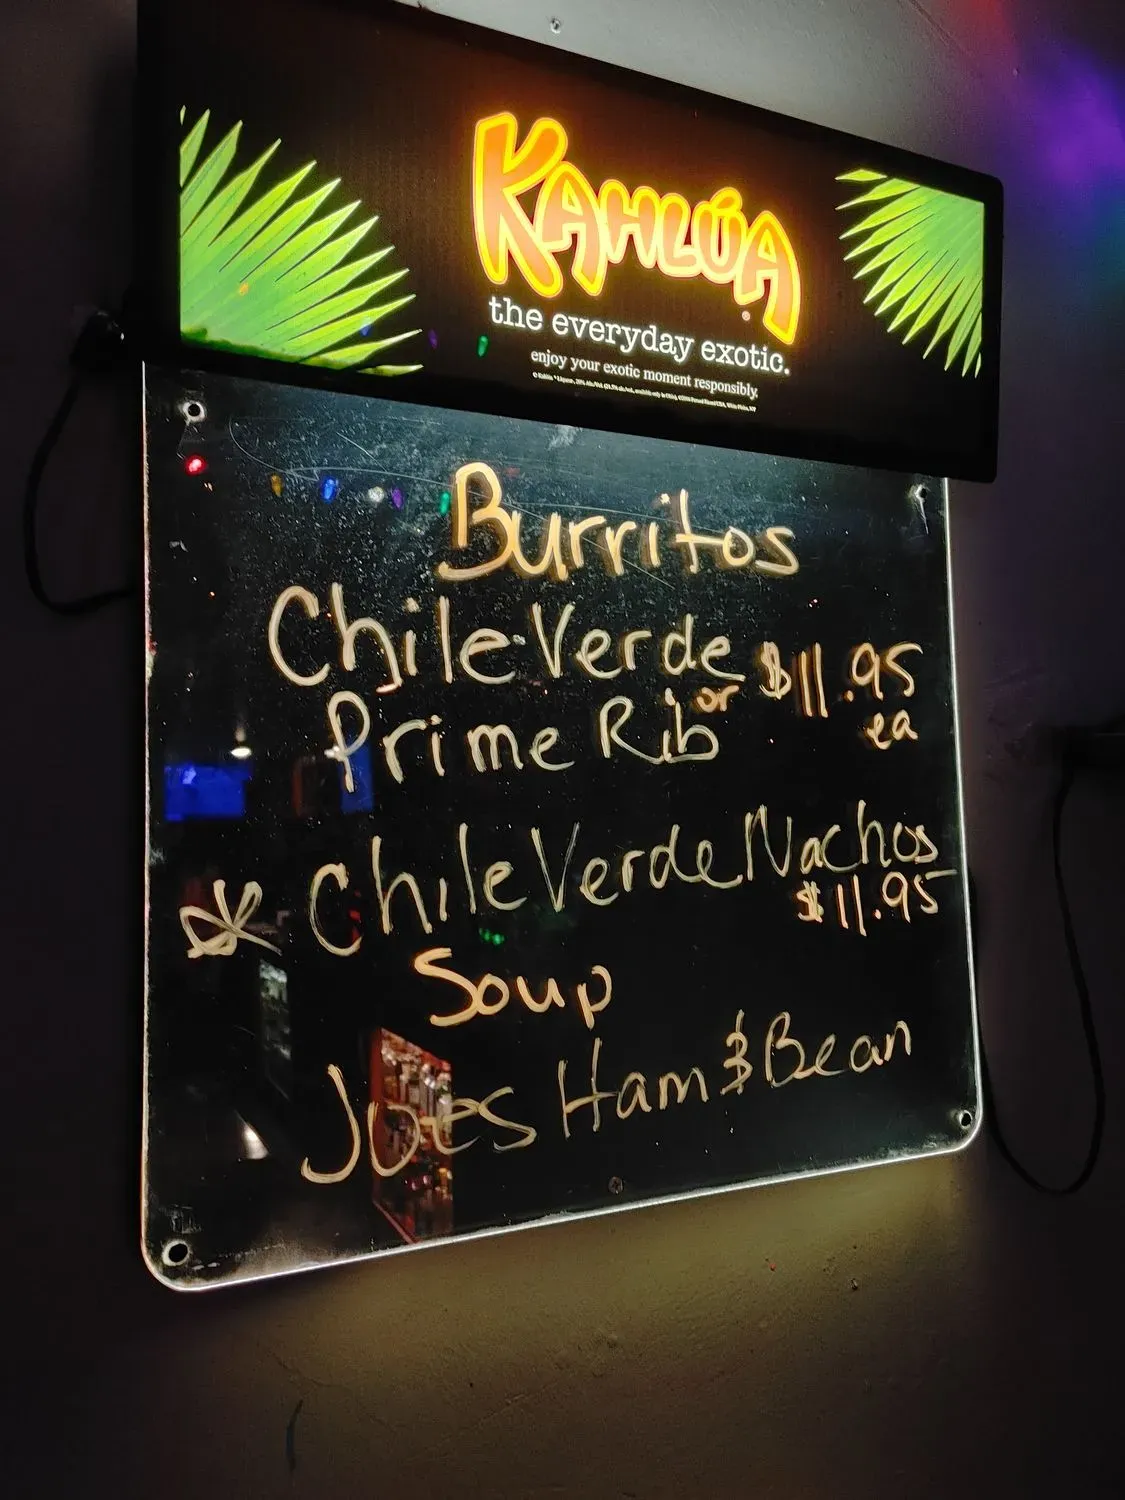 KAHLÚA
the everyday exotic.
enjoy your exotic moment responsibly.
Burritos
Chile Verde $11.95
or ea
Prime Rib
Chile Verde Nachos
$11.95
Soup
Joes Ham & Bean